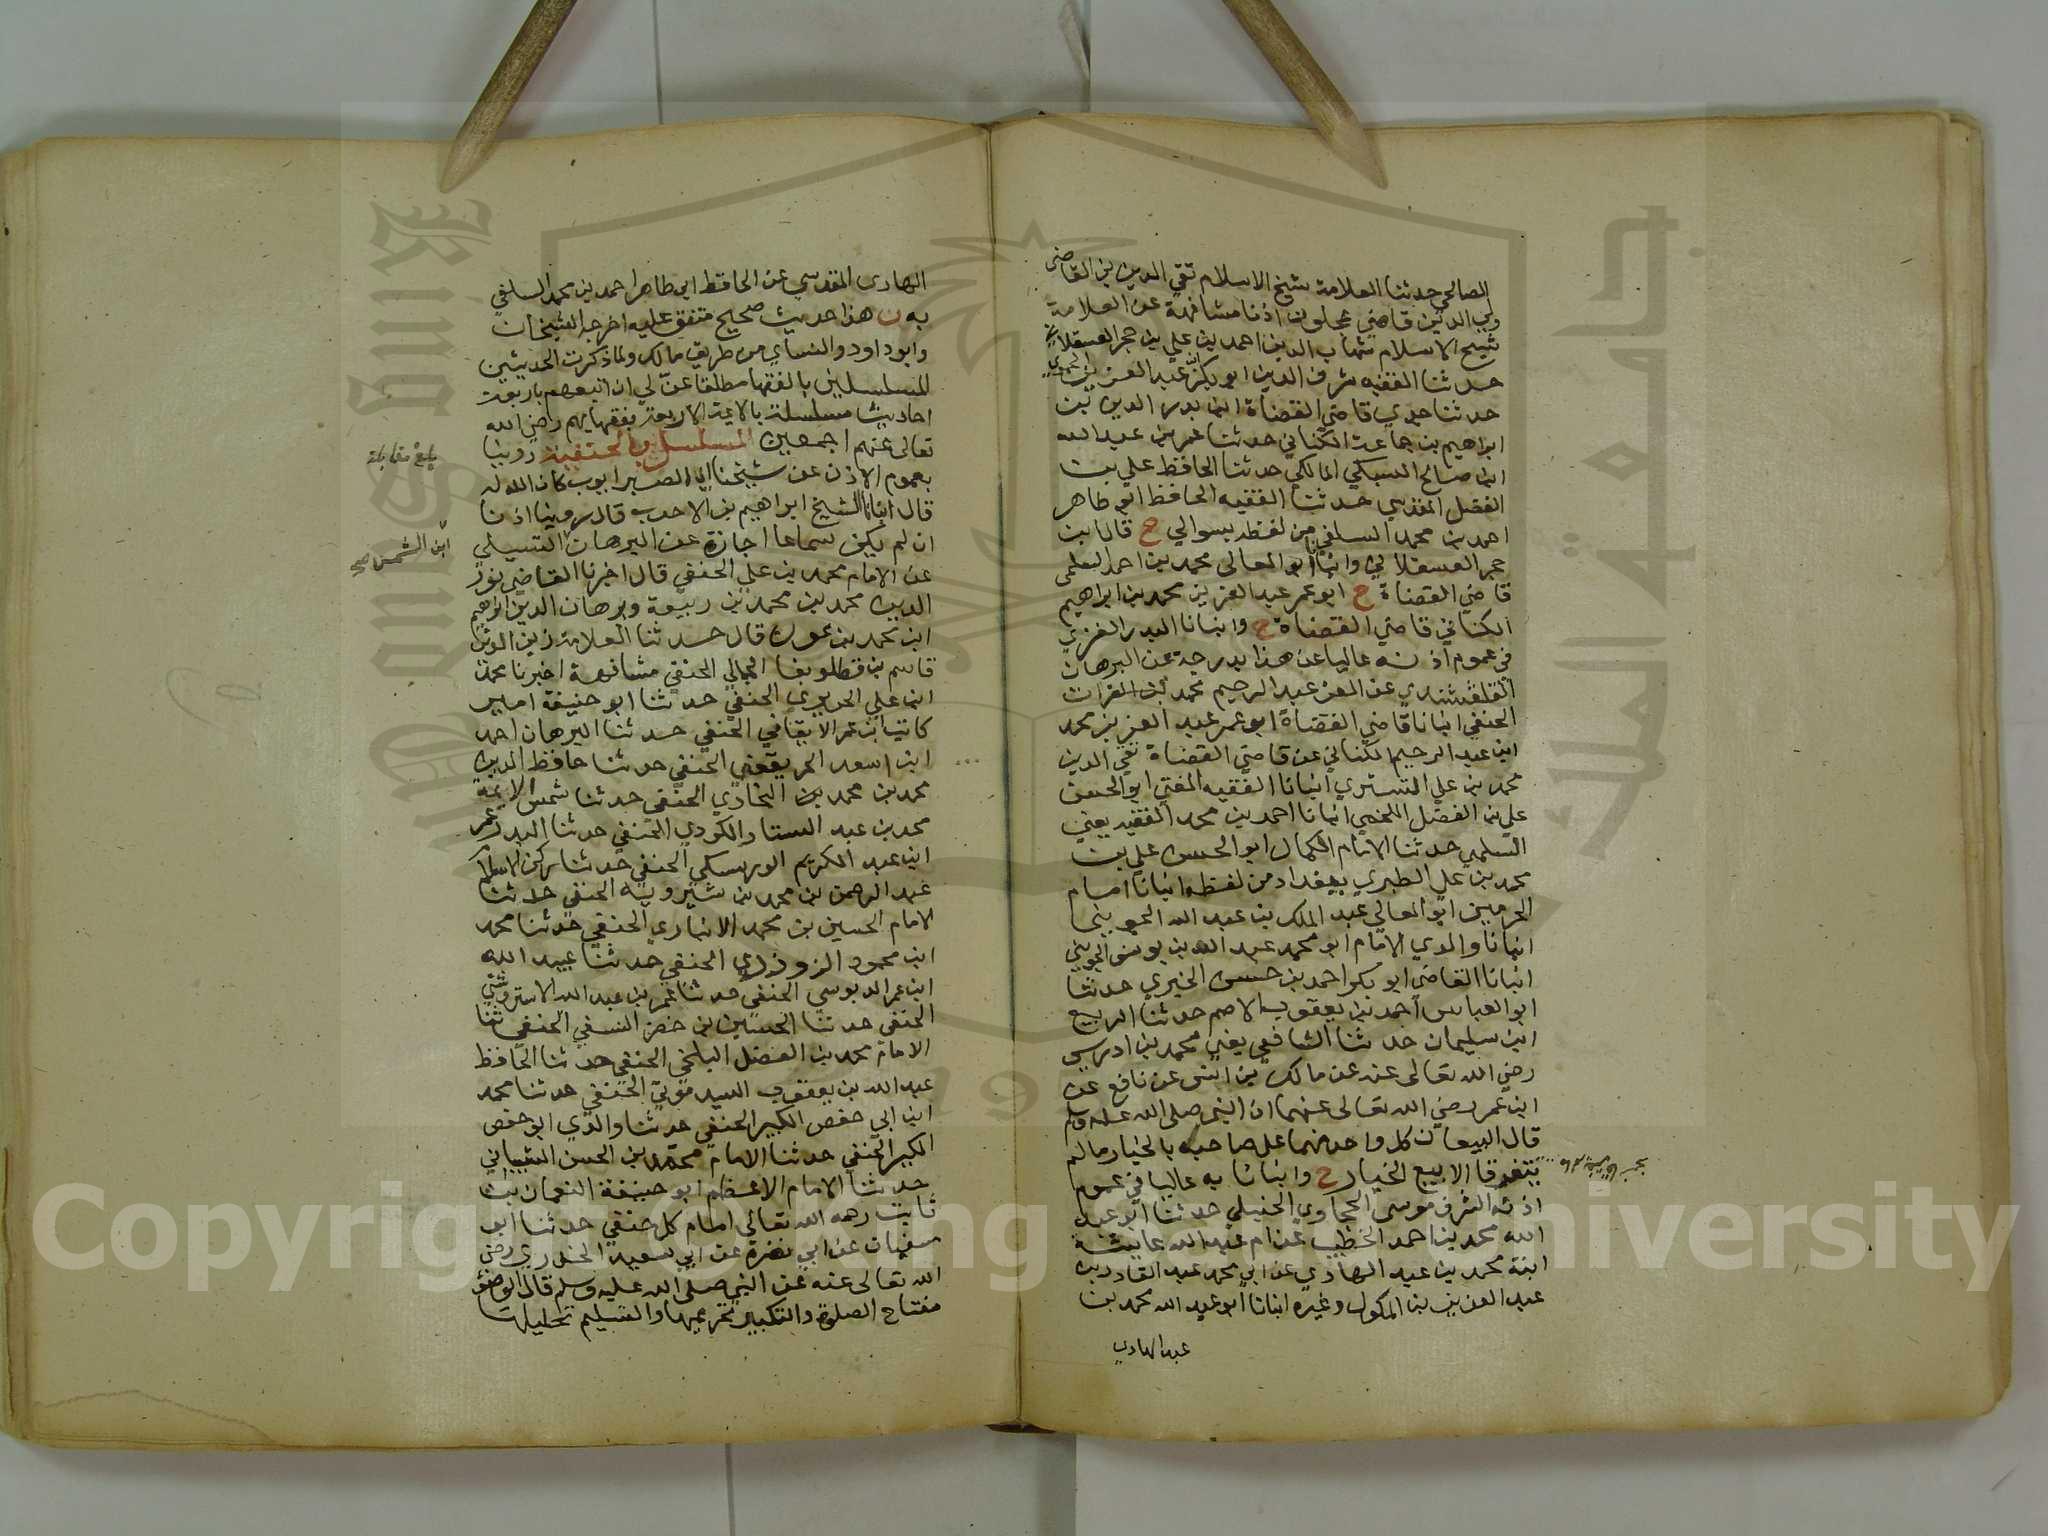 الصالحي حدثنا العلامة شيخ الاسلام تقي الدين بن القاضي
ولي الدين قاضي عجلون اذنا مشافهة عن العلامة
شيخ الاسلام شهاب الدين احمد بن علي بن حجر العسقلاني
حدثنا الفقيه شرف الدين ابو بكر بن عبد العزيز الحموي
حدثنا جدي قاضي القضاة انبا بدر الدين بن
ابراهيم بن جماعة الكناني حدثنا عمر بن عبد الله
ابن صالح السبكي المالكي حدثنا الحافظ علي بن
الفضل المقدسي حدثنا الفقيه الحافظ ابو طاهر
احمد بن محمد السلفي من لفظه بسوالي ح قال ابن
حجر العسقلاني وانبأ ابو المعالي محمد بن احمد السلمي
قاضي القضاة ح ابو عمر عبد العزيز محمد بن ابراهيم
الكناني قاضي القضاة ح وانبانا البدر الغزي
في عموم اذنه عاليا عن هذا بدرجة عن البرهان
القلقشندي عن المعز عبد الرحيم محمد بن الفرات
الحنفي انبانا قاضي القضاة ابو عمر عبد العزيز بن محمد
ابن عبد الرحيم الكناني عن قاضي القضاة تقي الدين
محمد بن علي التستري انبانا الفقيه المفتي ابو الحسن
علي بن الفضل اللخمي انبانا احمد بن محمد الفقيه يعني
السلمي حدثنا الامام الكمال ابو الحسن علي بن
محمد بن علي الطبري ببغداد من لفظه انبانا امام
الحرمين ابو المعالي عبد الملك بن عبد الله الجويني
انبانا والدي الامام ابو محمد عبد الله بن يوسف الجويني
انبانا القاضي ابو بكر احمد بن حسن الخيري حدثنا
ابو العباس احمد بن يعقوب الاصم حدثنا الربيع
ابن سليمان حدثنا الشافعي يعني محمد بن ادريس
رضي الله تعالى عنه عن مالك بن انس عن نافع عن
ابن عمر رضي الله تعالى عنهما ان النبي صلى الله عليه وسلم
قال البيعان كل واحد منهما على صاحبه بالخيار ما لم
يتفرقا الا بيع الخيار ح وانبانا به عاليا في عموم
اذنه الشرف موسى الحجاوي الحنبلي حدثنا ابو عبد
الله محمد بن احمد الخطيب عن ام عبد الله عايشة
ابنة محمد بن عبد الهادي عن ابي محمد عبد القادر بن
عبد العزيز بن المكوك وغيره انبانا ابو عبد الله محمد بن
عبد الهادي
الهادي المقدسي عن الحافظ ابي طاهر احمد بن محمد السلفي
به ن هذا حديث صحيح متفق عليه اخرجه الشيخان
وابو داود والنساي من طريق مالك ولما ذكرت الحديثين
المسلسلين بالفقها مطلقا عنّ لي ان اتبعهم باربعة
احاديث مسلسلة بالايمة الاربعة بفقهايهم رضي الله
تعالى عنهم اجمعين المسلسل بالحنفية روينا
بلغ مقابلة
بعموم الاذن عن شيخنا ابي الصبر ايوب كان الله له
قال انبانا الشيخ ابراهيم بن الاحدب قال روينا اذنا
ان لم يكن سماعا اجازة عن البرهان التسيلي
ابن الشمس صح
عن الامام محمد بن علي الحنفي قال اخبرنا القاضي نور
الدين محمد بن محمد بن ربيعة وبرهان الدين ابراهيم
ابن محمد بن عون قال حدثنا العلامة زين الدين
قاسم بن قطلوبغا الجمالي الحنفي مشافهة اخبرنا محمد
ابن علي الحريري الحنفي حدثنا ابو حنيفة امير
كاتب ابن عمر الاتقاني الحنفي حدثنا البرهان احمد
ابن اسعد الخريفعني الحنفي حدثنا حافظ الدين
محمد بن محمد بن البخاري الحنفي حدثنا شمس الايمة
محمد بن عبد الستار الكردي الحنفي حدثنا البدر عمر
ابن عبد الكريم الورسكي الحنفي حدثنا ركن الاسلام
عبد الرحمن بن محمد بن شيرويه الحنفي حدثنا
الامام الحسين بن محمد الانباري الحنفي حدثنا محمد
ابن محمود الزوزني الحنفي حدثنا عبيد الله
ابن عمر الدبوسي الحنفي حدثنا عمر بن عبد الله الاستروشني
الحنفي حدثنا الحسين بن خضر النسفي الحنفي ثنا
الامام محمد بن الفضل البلخي الحنفي حدثنا الحافظ
عبد الله بن يعقوب السيدموني الحنفي حدثنا محمد
ابن ابي حفص الكبير الحنفي حدثنا والدي ابو حفص
الكبير الحنفي حدثنا الامام محمد بن الحسن الشيباني
حدثنا الامام الاعظم ابو حنيفة النعمان بن
ثابت رحمه الله تعالى امام كل حنفي حدثنا ابو
سفيان عن ابي نضرة عن ابي سعيد الخدري رضي
الله تعالى عنه عن النبي صلى الله عليه وسلم قال الوضوء
مفتاح الصلوة والتكبير تحريمها والتسليم تحليلها
Copyright © King Saud University
جامعة الملك سعود
King Saud University